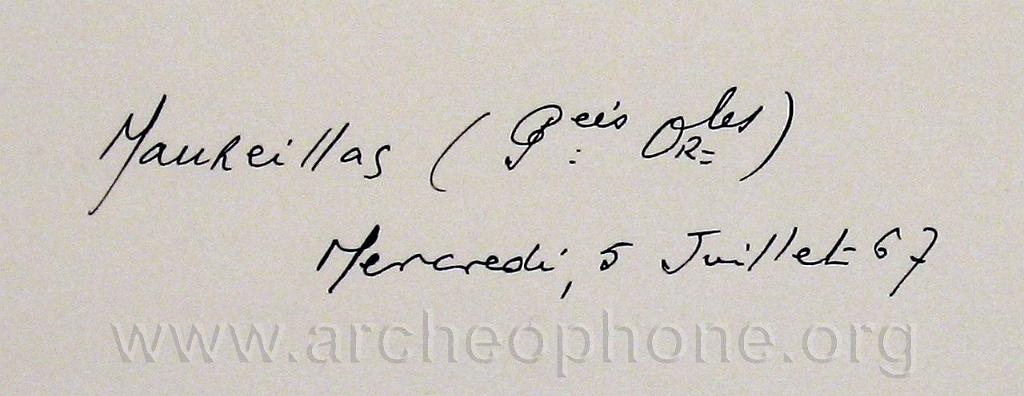 Maureillas (Pées Orles)
Mercredi, 5 Juillet 67
www.archeophone.org